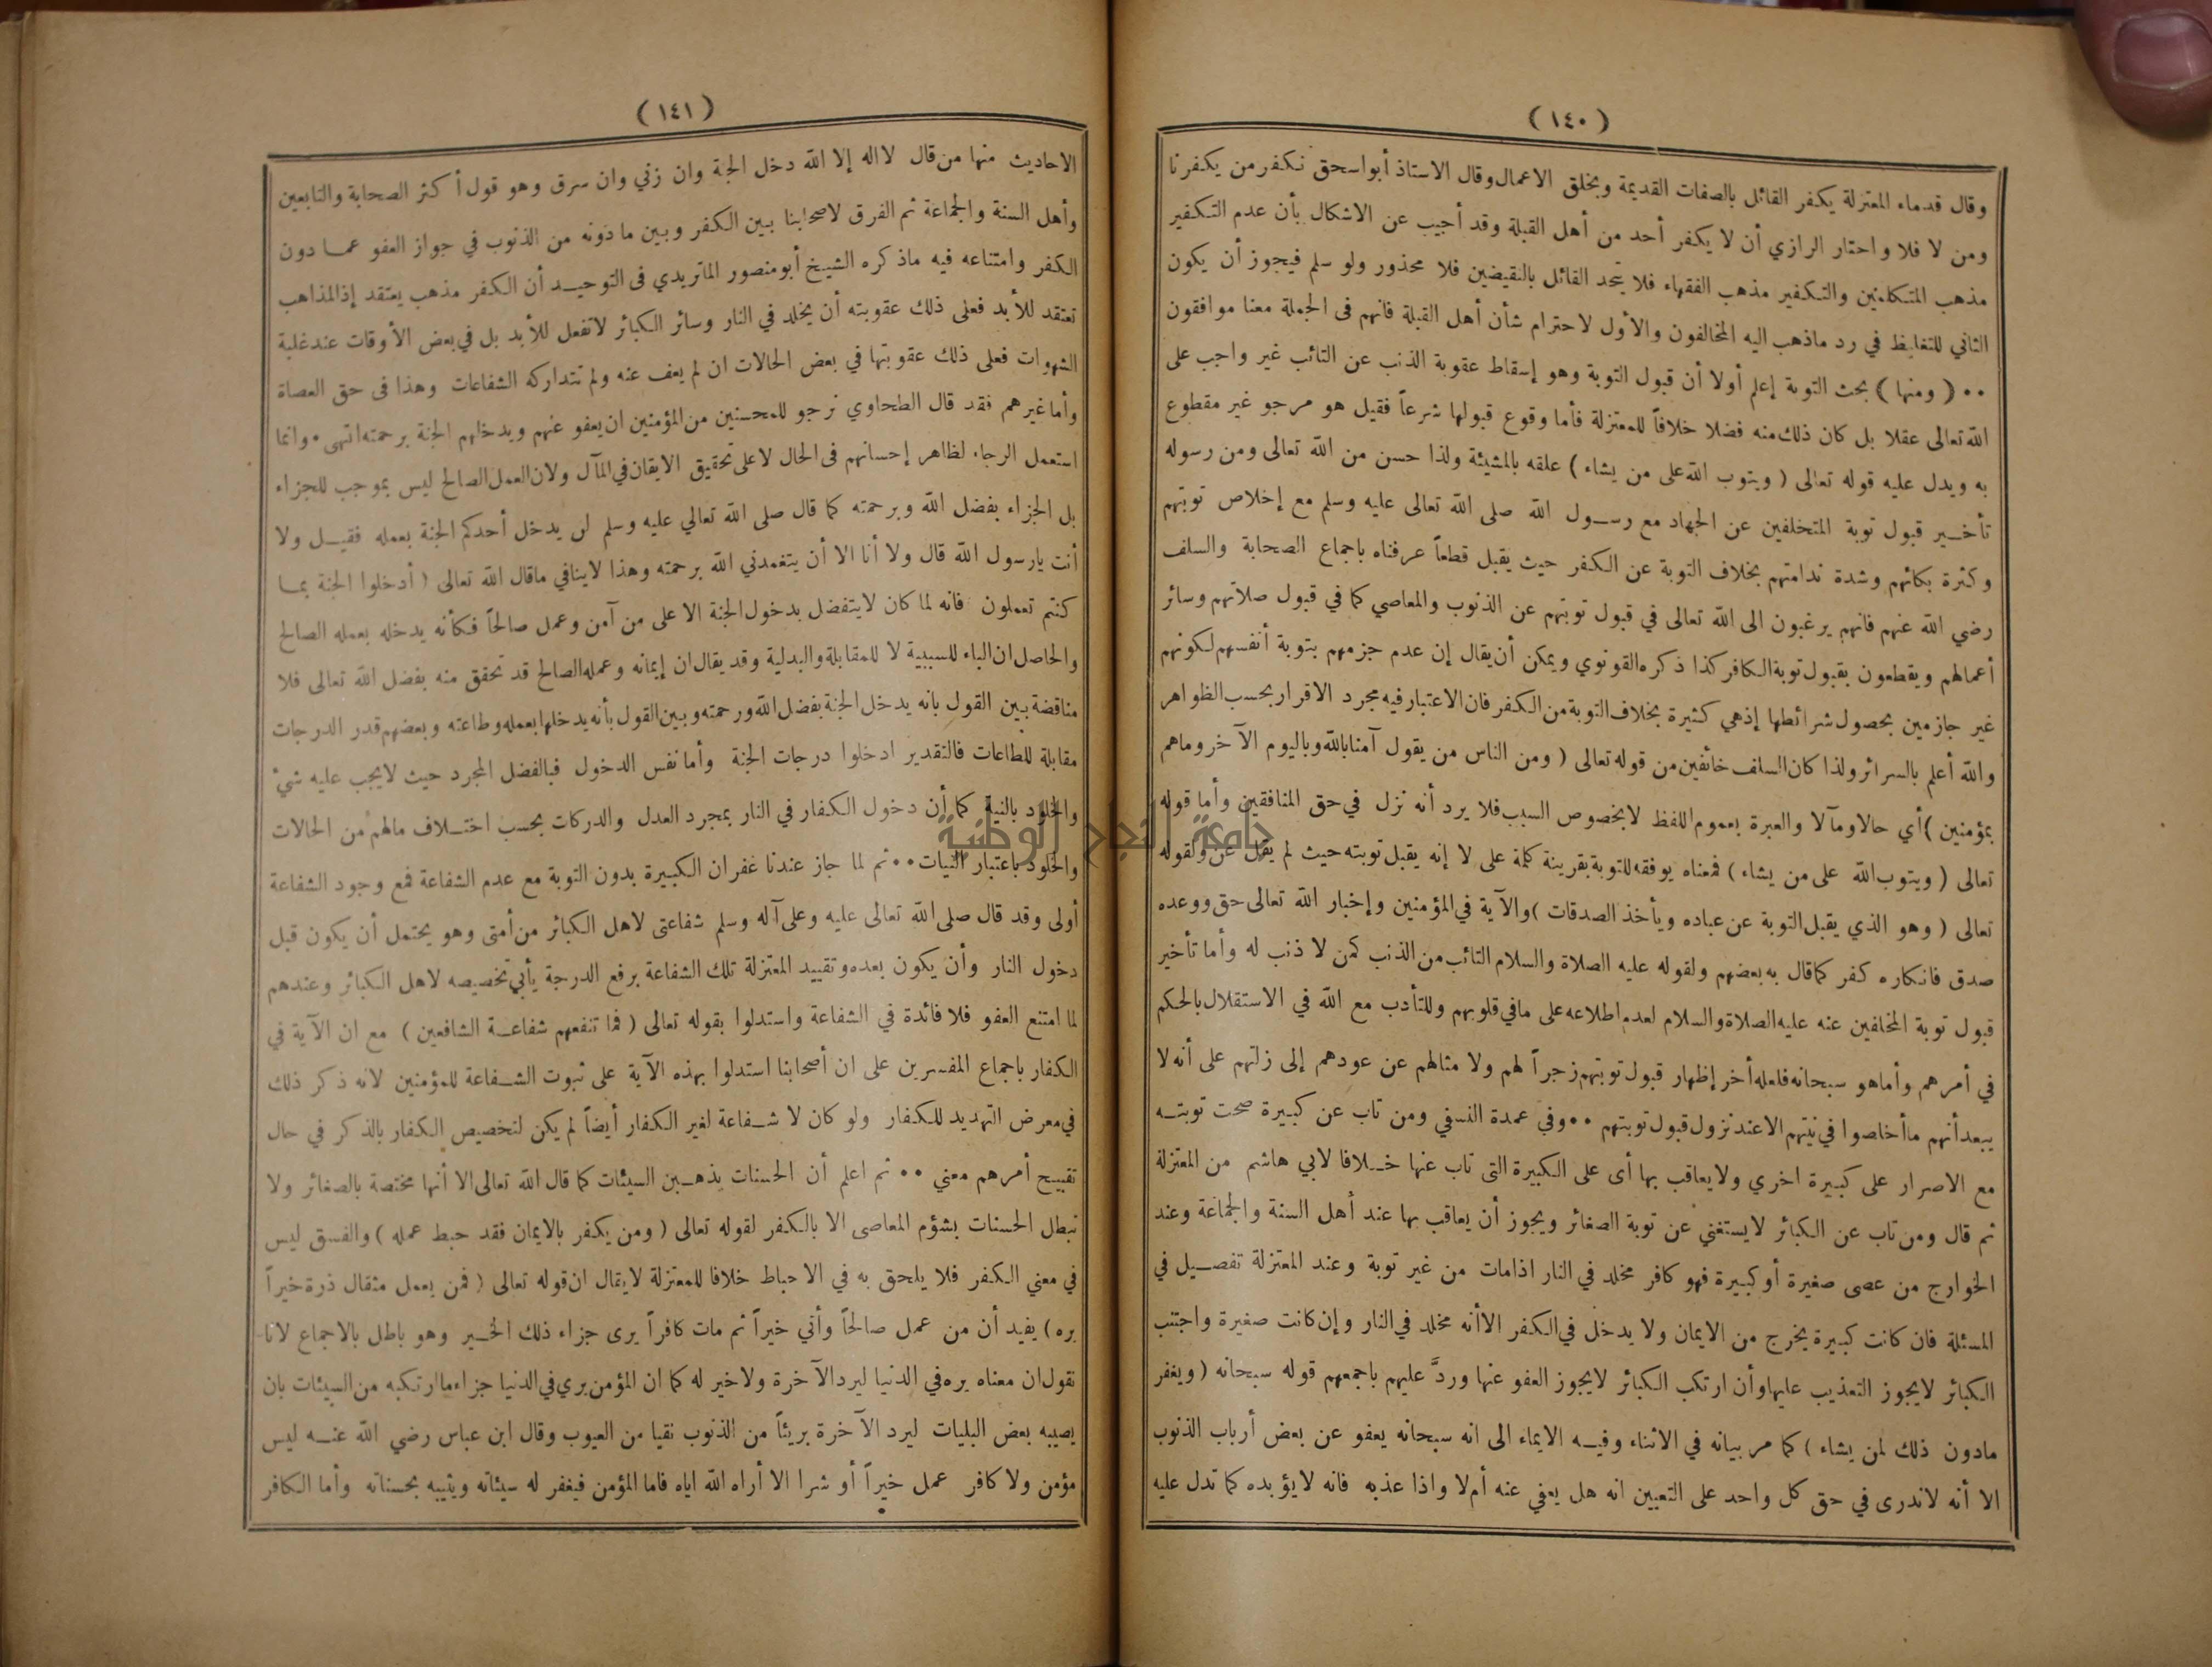 ( ١٤٠ )
وقال قدماء المعتزلة يكفر القائل بالصفات القديمة وبخلق الاعمال وقال الاستاذ أبواسحق نكفر من يكفرنا
ومن لا فلا واختار الرازي أن لا يكفر أحد من أهل القبلة وقد أجيب عن الاشكال بأن عدم التكفير
مذهب المتكلمين والتكفير مذهب الفقهاء فلا يتحد القائل بالنقيضين فلا محذور ولو سلم فيجوز أن يكون
الثاني للتغليظ في رد ماذهب اليه المخالفون والأول لاحترام شأن أهل القبلة فانهم فى الجملة معنا موافقون
•• ( ومنها ) بحث التوبة إعلم أولا أن قبول التوبة وهو إسقاط عقوبة الذنب عن التائب غير واجب على
الله تعالى عقلا بل كان ذلك منه فضلا خلافاً للمعتزلة فأما وقوع قبولها شرعاً فقيل هو مرجو غير مقطوع
به ويدل عليه قوله تعالى ( ويتوب الله على من يشاء ) علقه بالمشيئة ولذا حسن من الله تعالى ومن رسوله
تأخير قبول توبة المتخلفين عن الجهاد مع رسول الله صلى الله تعالى عليه وسلم مع إخلاص توبتهم
وكثرة بكائهم وشدة ندامتهم بخلاف التوبة عن الكفر حيث يقبل قطعاً عرفناه باجماع الصحابة والسلف
رضي الله عنهم فانهم يرغبون الى الله تعالى في قبول توبتهم عن الذنوب والمعاصي كما في قبول صلاتهم وسائر
أعمالهم ويقطعون بقبول توبة الكافر كذا ذكره القونوي ويمكن أن يقال إن عدم جزمهم بتوبة أنفسهم لكونهم
غير جازمين بحصول شرائطها إذهي كثيرة بخلاف التوبة من الكفر فان الاعتبار فيه مجرد الاقرار بحسب الظواهر
والله أعلم بالسرائر ولذا كان السلف خائفين من قوله تعالى ( ومن الناس من يقول آمنا بالله وباليوم الآخر وماهم
بمؤمنين ) أي حالا ومآلا والعبرة بعموم اللفظ لا بخصوص السبب فلا يرد أنه نزل في حق المنافقين وأما قوله
تعالى ( ويتوب الله على من يشاء ) فمعناه يوفقه للتوبة بقرينة كلمة على لا إنه يقبل توبته حيث لم يقل عن ولقوله
تعالى ( وهو الذي يقبل التوبة عن عباده ويأخذ الصدقات ) والآية في المؤمنين وإخبار الله تعالى حق ووعده
صدق فانكاره كفر كما قال به بعضهم ولقوله عليه الصلاة والسلام التائب من الذنب كمن لا ذنب له وأما تأخير
قبول توبة المخلفين عنه عليه الصلاة والسلام لعدم اطلاعه على مافي قلوبهم وللتأدب مع الله في الاستقلال بالحكم
في أمرهم وأما هو سبحانه فلعله أخر إظهار قبول توبتهم زجراً لهم ولا مثالهم عن عودهم إلى زلتهم على أنه لا
يبعد أنهم ما أخلصوا في نيتهم الا عند نزول قبول توبتهم •• وفي عمدة النسفي ومن تاب عن كبيرة صحت توبته
مع الاصرار على كبيرة اخري ولا يعاقب بها أى على الكبيرة التى تاب عنها خلافا لابي هاشم من المعتزلة
ثم قال ومن تاب عن الكبائر لا يستغني عن توبة الصغائر ويجوز أن يعاقب بها عند أهل السنة والجماعة وعند
الخوارج من عصى صغيرة أو كبيرة فهو كافر مخلد في النار اذا مات من غير توبة وعند المعتزلة تفصيل في
المسئلة فان كانت كبيرة يخرج من الايمان ولا يدخل في الكفر الا أنه مخلد في النار وإن كانت صغيرة واجتنب
الكبائر لايجوز التعذيب عليها وأن ارتكب الكبائر لايجوز العفو عنها وردَّ عليهم باجمعهم قوله سبحانه ( ويغفر
مادون ذلك لمن يشاء ) كما مر بيانه في الاثناء وفيه الايماء الى انه سبحانه يعفو عن بعض أرباب الذنوب
الا أنه لاندرى في حق كل واحد على التعيين انه هل يعفي عنه أم لا واذا عذبه فانه لا يؤبده كما تدل عليه
( ١٤١ )
الاحاديث منها من قال لااله إلا الله دخل الجنة وان زني وان سرق وهو قول أكثر الصحابة والتابعين
وأهل السنة والجماعة ثم الفرق لاصحابنا بين الكفر وبين مادونه من الذنوب في جواز العفو عما دون
الكفر وامتناعه فيه ماذكره الشيخ أبومنصور الماتريدي فى التوحيد أن الكفر مذهب يعتقد إذ المذاهب
تعتقد للأبد فعلى ذلك عقوبته أن يخلد في النار وسائر الكبائر لاتفعل للأبد بل في بعض الأوقات عند غلبة
الشهوات فعلى ذلك عقوبتها في بعض الحالات ان لم يعف عنه ولم تتداركه الشفاعات وهذا فى حق العصاة
وأما غيرهم فقد قال الطحاوي نرجو للمحسنين من المؤمنين ان يعفو عنهم ويدخلهم الجنة برحمته انتهى • وانما
استعمل الرجاء لظاهر إحسانهم فى الحال لا على تحقيق الايقان في المآل ولان العمل الصالح ليس بموجب للجزاء
بل الجزاء بفضل الله وبرحمته كما قال صلى الله تعالي عليه وسلم لن يدخل أحدكم الجنة بعمله فقيل ولا
أنت يارسول الله قال ولا أنا الا أن يتغمدني الله برحمته وهذا لاينافي ماقال الله تعالى ( أدخلوا الجنة بما
كنتم تعملون فانه لما كان لا يتفضل بدخول الجنة الا على من آمن وعمل صالحاً فكأنه يدخله بعمله الصالح
والحاصل ان الباء للسببية لا للمقابلة والبدلية وقد يقال ان إيمانه وعمله الصالح قد تحقق منه بفضل الله تعالى فلا
مناقضة بين القول بانه يدخل الجنة بفضل الله ورحمته وبين القول بأنه يدخلها بعمله وطاعته وبعضهم قدر الدرجات
مقابلة للطاعات فالتقدير ادخلوا درجات الجنة وأما نفس الدخول فبالفضل المجرد حيث لايجب عليه شئ
والخلود بالنية كما أن دخول الكفار في النار بمجرد العدل والدركات بحسب اختلاف مالهم من الحالات
والخلود باعتبار النيات •• ثم لما جاز عندنا غفران الكبيرة بدون التوبة مع عدم الشفاعة فمع وجود الشفاعة
أولى وقد قال صلى الله تعالى عليه وعلى آله وسلم شفاعتى لاهل الكبائر من أمتى وهو يحتمل أن يكون قبل
دخول النار وأن يكون بعده وتقييد المعتزلة تلك الشفاعة برفع الدرجة يأبي تخصيصه لاهل الكبائر وعندهم
لما امتنع العفو فلا فائدة في الشفاعة واستدلوا بقوله تعالى ( فما تنفعهم شفاعة الشافعين ) مع ان الآية في
الكفار باجماع المفسرين على ان أصحابنا استدلوا بهذه الآية على ثبوت الشفاعة للمؤمنين لانه ذكر ذلك
في معرض التهديد للكفار ولو كان لا شفاعة لغير الكفار أيضاً لم يكن لتخصيص الكفار بالذكر في حال
تقبيح أمرهم معني •• ثم اعلم أن الحسنات يذهبن السيئات كما قال الله تعالى الا أنها مختصة بالصغائر ولا
تبطل الحسنات بشؤم المعاصى الا بالكفر لقوله تعالى ( ومن يكفر بالايمان فقد حبط عمله ) والفسق ليس
في معني الكفر فلا يلحق به في الاحباط خلافا للمعتزلة لايقال ان قوله تعالى ( فمن يعمل مثقال ذرة خيراً
يره ) يفيد أن من عمل صالحاً وأتي خيراً ثم مات كافراً يرى جزاء ذلك الخير وهو باطل بالاجماع لانا
نقول ان معناه يره في الدنيا ليرد الآخرة ولا خير له كما ان المؤمن يري في الدنيا جزاء ما ارتكبه من السيئات بان
يصيبه بعض البليات ليرد الآخرة بريئاً من الذنوب نقيا من العيوب وقال ابن عباس رضي الله عنه ليس
مؤمن ولا كافر عمل خيراً أو شرا الا أراه الله اياه فاما المؤمن فيغفر له سيئاته ويثيبه بحسناته وأما الكافر
جامعة النجاح الوطنية